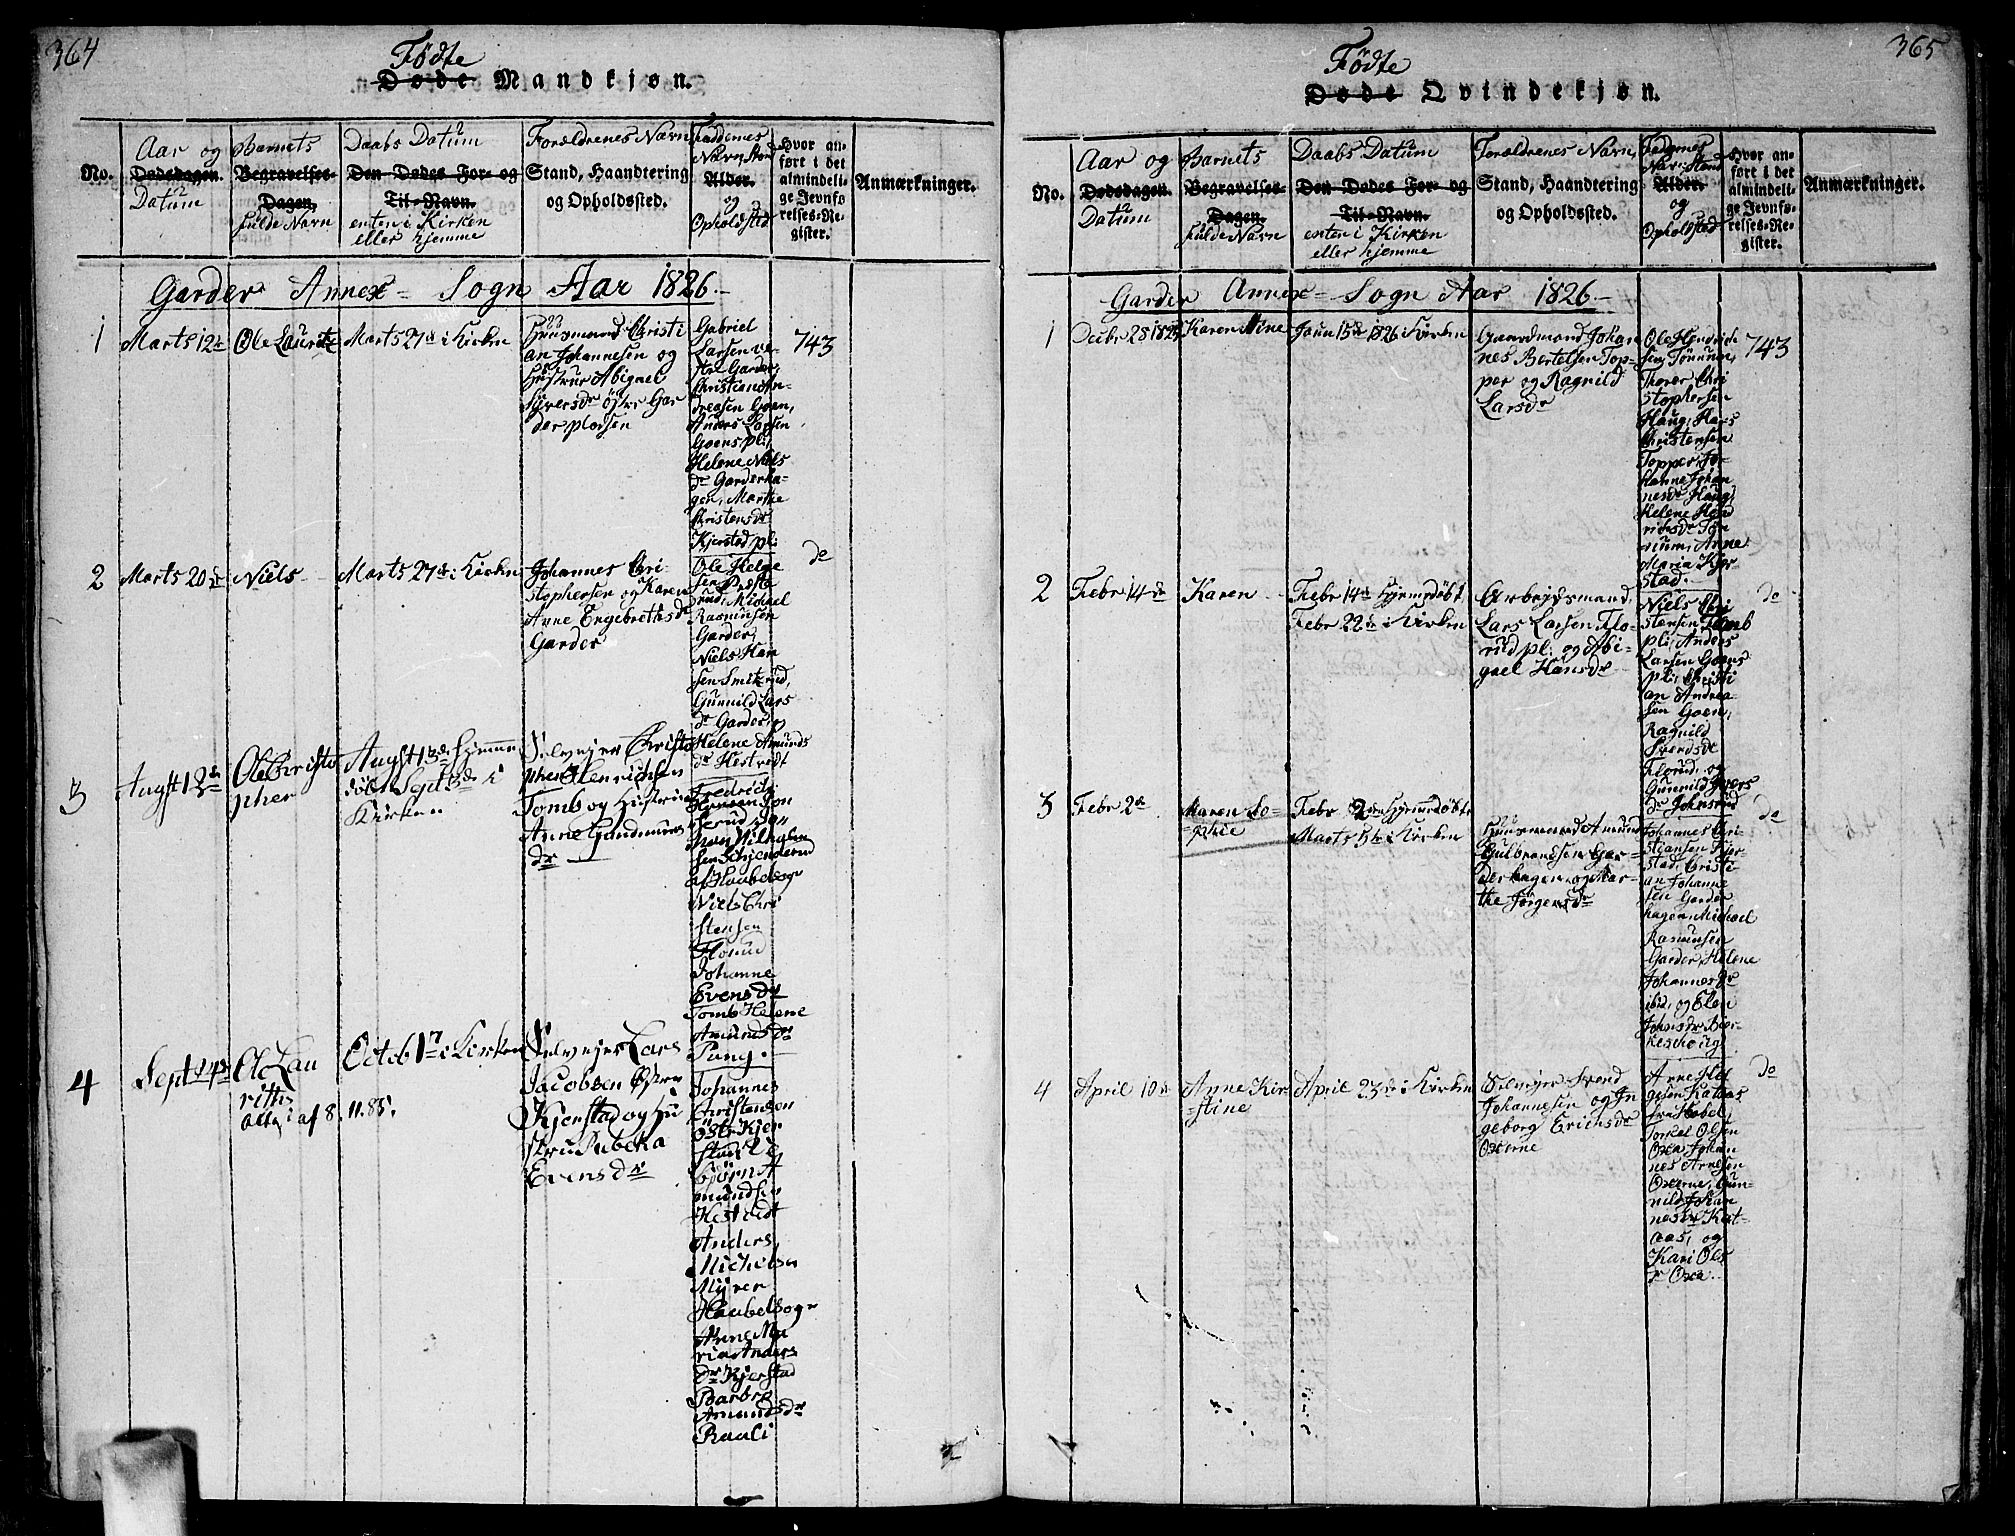 364
Födte
Döde Mandkjøn.
No.
Aar og
Dødsdagen.
Datum
Barnets
Begravelses-
Dagen,
fulde Navn
Daabs Datum
Den Dødes For- og
Til-Navn.
enten i Kirken
eller hjemme
Forældrenes Navn
Stand, Haandtering
og Opholdssted.
Faddernes
Navn, Stand
Alder.
og
Opholdsted
Hvor an-
ført i det
almindeli-
ge Jevnfø-
relses-Re-
gister.
Anmærkninger.
Garder Annex- Sogn Aar 1826.-
1
Marts 12te
Ole Lauritz
Marts 27de i Kirken
Huusmand Christi
an Johannesen og
Hustrue Abigael
Siversdr östre Gar
der pladsen
Gabriel
Larsen ve-
stre Garder,
Christian An-
dreasen Goen,
Anders Larsen
Goens pl:
Helene Niels
dr Garderha-
gen, Marthe
Christensdr
Kjerstad pl:
743
2
Marts 20de
Niels
Marts 27de i Kirken
Johannes Chri
stophersen og Karen
Anne Engebrethsdr
Garder
Ole Helge
sen Præste
rud, Michael
Rasmusen
Garder,
Niels Han
sen Smiterud,
Gunnild Lars
dr Garder, og
Helene Amunds
dr Hestvedt
do
3
Augst 13de
Ole Christo
pher
Augst 13de Hjemme
döbt Sept 3de i
Kirken
Selvejer Christo
pher Henrichsen
Tomb og Hustrue
Anne Gundmunds
dr
Fredrich
Hansen Jon
serud
Niels Chri
stensen
Florud
Johanne
Evensdr
Tomb Helene
Amundsdr
Pung.
4
Sept 14de
Ole Lau
rits
Attest af 8. 11. 85.
Octob 1ste i Kirken
Selvejer Lars
Jacobsen Östre
Kjerstad og Hu
strue Rebeka
Evensdr
Johannes
Christensen
östr Kjer
stad
björn A
mundsen
Hestvedt
Anders
Michelsen
Myrer
Haabelsogn
Anne Ma
ria Anders
dr Kjerstad
Barbro
Amundsdr
Raali
365
Födte
Døde Qvindekjøn.
No.
Aar og
Dødsdagen.
Datum
Barnets
Begravelses-
Dagen.
fulde Navn
Daabs Datum
Den Dødes For- og
Til-Navn.
enten i Kirken
eller hjemme
Forældrenes Navn,
Stand, Haandtering
og Opholdssted.
Fadernes
Navn, Stand
Alder.
og
Opholdsted
Hvor an-
ført i det
almindeli-
ge Jevnfø-
relses-Re-
gister.
Anmærkninger.
Garder Annex- Sogn Aar 1826.-
1
Decbr 28 1825
Karen Mine
Janu 15de 1826 i Kirken
Gaardmand Johan
nes Bertelsen Top-
per og Ragnild
Larsdr
Ole Hendrich
sen Tømmum,
Thorer Chri
stophersen
Haug, Hans
Christensen
Topper, Jo-
hanne Johan
nesdr Haug,
Helene Hend
richsdr Töm
mum, Anne
Maria Kjer
stad.
743
2
Febr 14de
Karen
Febr 14de Hjemmedøbt
Febr 22de i Kirken
Arbejdsmand
Lars Larsen Flo-
rud pl: og Abi-
gael Hansdr
Niels Chri
stensen Tomb
pl: Anders
Larsen Goens
pl: Christi
an Andrea-
sen Goen,
Ragnild
Svendsdr
Florud, og
Gunnild Ivers
dr Johnsrud
do
3
Febr 2de
Maren So-
phie
Febr 2den Hjemmedøbt
Marts 5te i Kirken
Huusmand Amund
Gulbrandsen Gar-
derhagen og Mar-
the Jörgensdr
Johannes Chri-
stiansen Kjer-
stad, Christi-
an Johanne
sen Garder
hagen, Michael
Rasmusen
Garder, Helene
Johannesdr
ibid, og Elen
Johnsdr Bier-
keschoug
do
4
April 10de
Anne Kir
stine
April 23de i Kirken
Selvejer Svend
Johannesen og In
geborg Erichsdr
Oxerne
Arne Hel
gesen Kataas
fra Høbøl,
Torkel Olsen
Oxe, Johan
nes Arnesen
Oxerne, Gun
nild Johan
nesdr Kat-
aas, og
Kari Ols
dr Oxe.
do